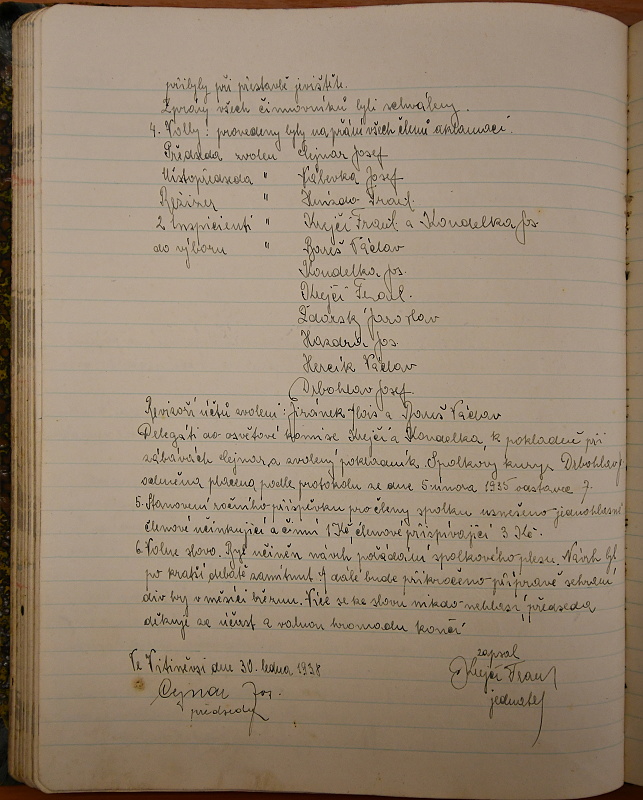 přibyly při přestavbě jeviště.
Zprávy všech činovníků byli schváleny.
4. Volby: provedeny byly na přání všech členů aklamací.
Předseda zvolen Cejnar Josef
Místopředseda " Vávevka Josef
Režizer " Hnízdo Frant.
2 Inspicienti " Krejčí Frant. a Kondelka Jos.
do výboru " Bareš Václav
Kondelka Jos.
Krejčí Frant.
Žďárský Jaroslav
Hazdra Jos.
Hercík Václav
Drbohlav Josef
Revizoři účtů zvoleni: Jiránek Alois a Bareš Václav
Delegáti do osvětové komise Krejčí a Kondelka, k pokladně při
zábavách Cejnar, a zvolený pokladník. Spolkový kurýr Drbohlav J.
odměna placena podle protokolu ze dne 5. února 1935 odstavce 7.
5. Stanovení ročního příspěvku pro členy spolku usnešeno jednohlasně
členové účinkující a činní 1 Kč členové přispívající 3 Kč.
6. Volné slovo. Byl učiněn návrh pořádání spolkového plesu. Návrh byl
po kratší debatě zamítnut. A dále bude přikročeno přípravě sehrání
div hry v měsíci březnu. Více se ke slovu nikdo nehlásí, předseda
děkuje za účast a valnou hromadu končí
Ve Vitiněvsi dne 30. ledna 1938
zapsal
Cejnar Jos.
předseda
Krejčí Frant
jednatel